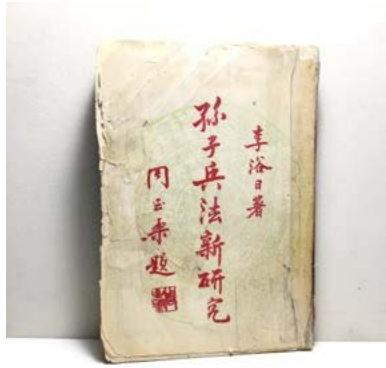 李浴日著
孫子兵法新研究
周玉柔題